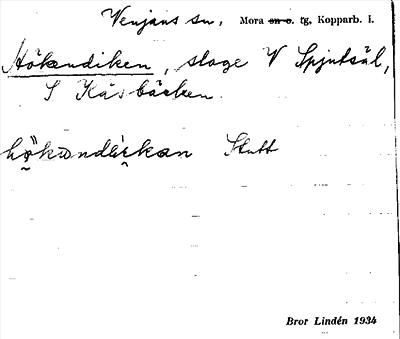 Venjans sn, Mora sn o. tg, Kopparb. l.
Hökendiken, sloge V Spjutsäl,
S Kåsbäcken.
hö̬kωndi̬kan Slutt
Bror Lindén 1934